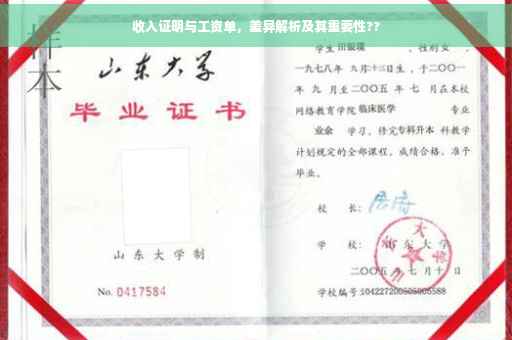 收入证明与工资单，差异解析及其重要性??
样本
山东大学
毕业证书
山东大学制
No. 0417584
学生
性别女，
一九七八年 九月十二日生，于二〇〇一
年 九 月至二〇〇五 年 七 月在本校
网络教育学院 临床医学 专业
业余 学习，修完专科升本 科教学
计划规定的全部课程，成绩合格，准予
毕业。
校 长：
学 校： 山东大学
二〇〇五 年 七 月 十 日
学校编号: